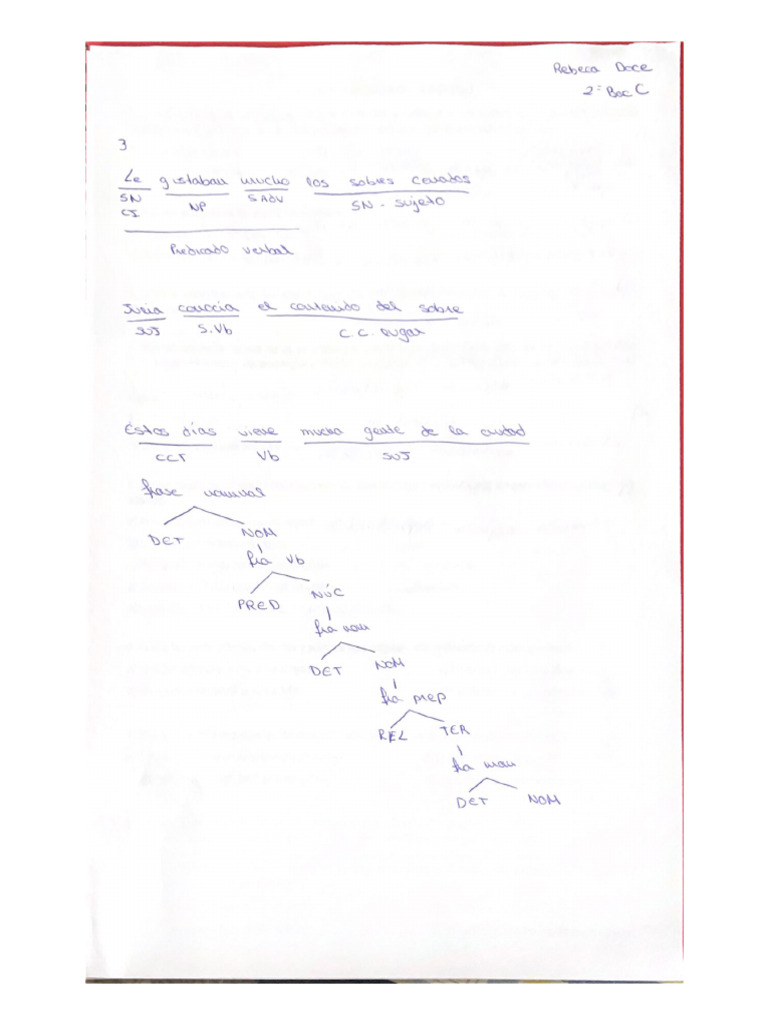 Rebeca Doce
2º Bac C
3
Le gustaban mucho los sobres cerrados
SN NP S ADV SN - Sujeto
CI
Predicado verbal
Juria conocía el contenido del sobre
SUJ S.Vb C.C. Lugar
Estos días viene mucha gente de la ciudad
CCT Vb SUJ
frase nominal
DET NOM
fra Vb
PRED NÚC
fra nom
DET NOM
fra prep
REL TER
fra nom
DET NOM